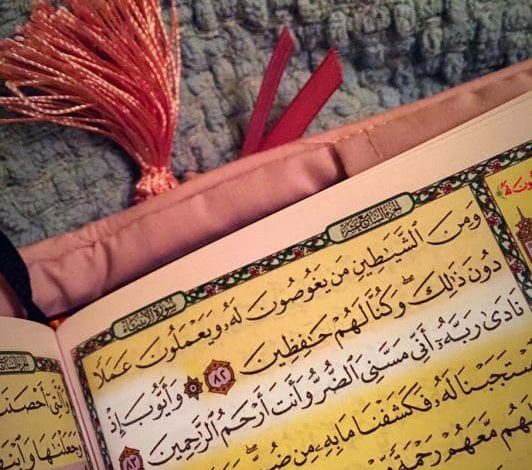 الجزء السابع عشر
سورة الأنبياء
وَمِنَ ٱلشَّيَٰطِينِ مَن يَغُوصُونَ لَهُۥ وَيَعْمَلُونَ عَمَلًا
دُونَ ذَٰلِكَ ۖ وَكُنَّا لَهُمْ حَٰفِظِينَ ٨٢ ۞ وَأَيُّوبَ إِذْ
نَادَىٰ رَبَّهُۥٓ أَنِّى مَسَّنِىَ ٱلضُّرُّ وَأَنتَ أَرْحَمُ ٱلرَّٰحِمِينَ ٨٣
ستَجَبْنَا لَهُۥ فَكَشَفْنَا مَا بِهِۦ مِن ضُرٍّ ۖ
هُم مَّعَهُمْ رَحْمَةً
وَٱلَّتِىٓ أَحْصَنَتْ